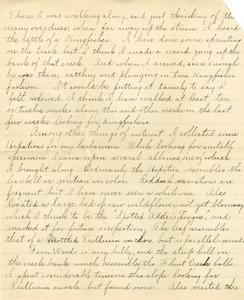 There I was walking along, and just thinking of the
many overdues, when far away up the stream I heard
the rattle of a Kingfisher. I have done some sprinting
on the track but I think I made a record going up the
bank of that creek. And when I arrived, sure enough
he was there, rattling and plunging in true Kingfisher
fashion. It would be putting it tamely to say I
felt relieved. I think I have walked at least ten
or twelve miles along this and other waters in the last
few weeks looking for Kingfishers.
Among other things of interest I collected some
Hepaticas for my herbarium. While looking for suitable
specimens I came upon several albinos, one of which
I brought along. Ordinarily the Hepatica resembles the
in color. Reddish variations are
frequent but I have never seen a white one. Also
located a large bed of new wildflower, not yet blooming
which I think to be the "Spotted Adder Tongue", and
marked it for future inspection. The leaf resembles
that of a Mottled Trillium but is parallel veined.
Fern Woods is very hilly, and the steep hill on
the creek bank much resembles the Creek hills.
I spent considerable time on the slope looking for
Trillium nivale but found none. Also visited the